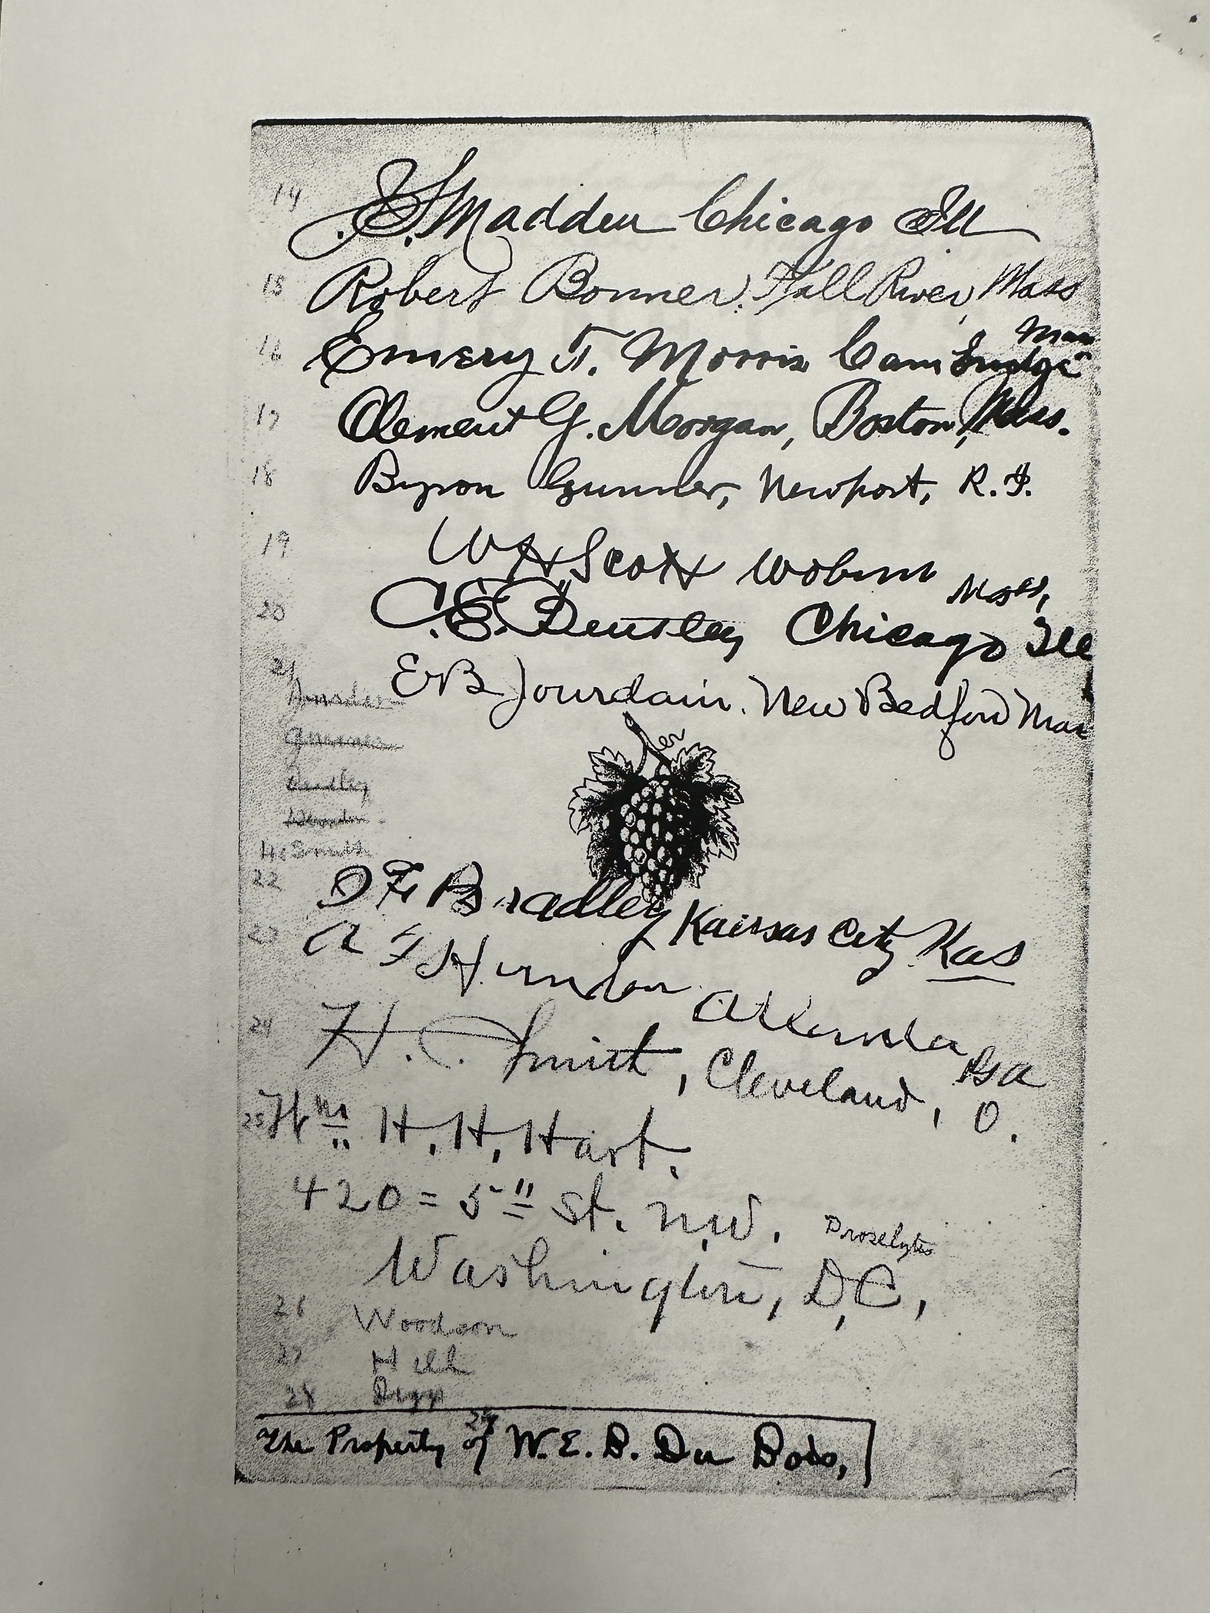 14 Madden Chicago Ill
15 Robert Bonner, Fall River, Mass
Mass
16 Emery T. Morris Cambridge
17 Clement G. Morgan, Boston, Mass.
18 Byron Gunner, Newport, R.I.
19 W H Scott Woburn Mass,
20 C.E. Bentley Chicago Ill
21 E B Jourdain. New Bedford Mas
Gunner
H.C. Smith
22 D F Bradley Kansas City Kas
23 A F Herndon Atlanta Ga
24 H. C. Smith, Cleveland, O.
25 Wm H. H. Hart.
420 = 5th St. N.W.
Washington, D.C,
26 Woodson
27 Hill
28
29
The Property of W. E. B. Du Bois,